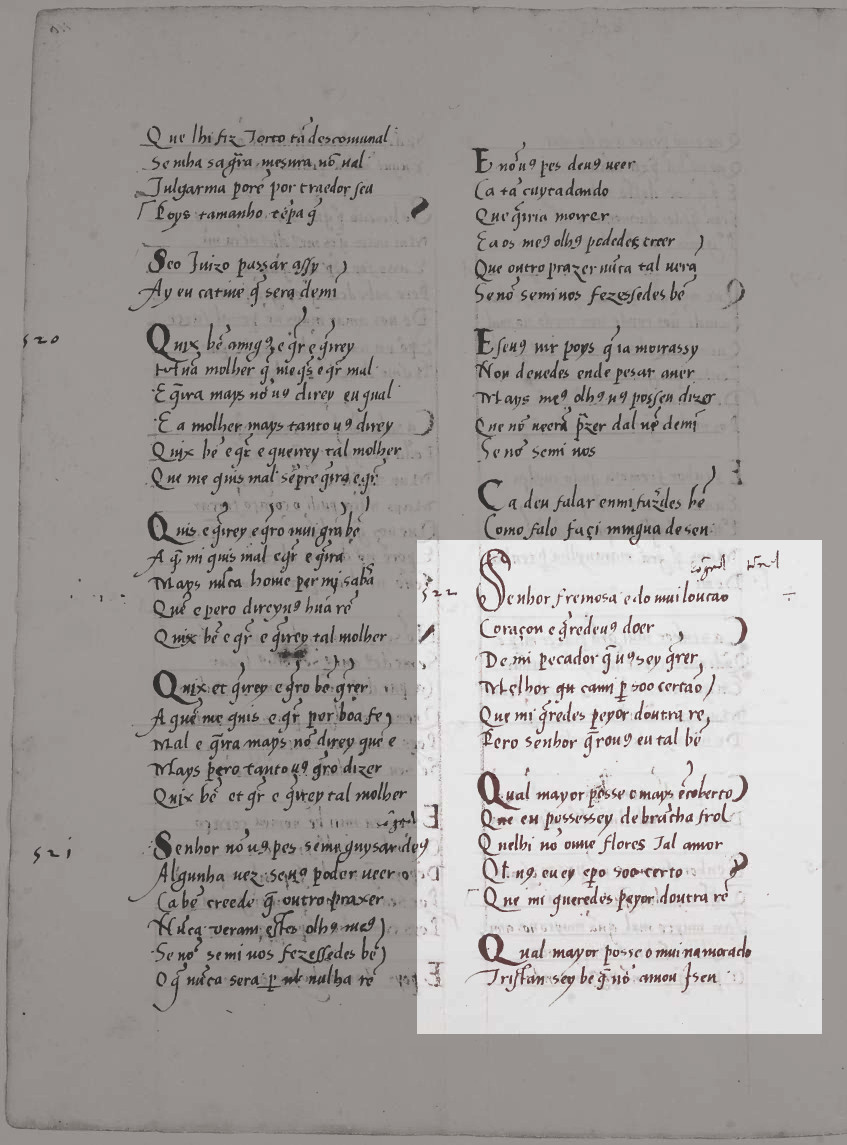 Que lhi fiz Torto tã descomunal
Se mha sa gr̃a mesura nõ ual
Julgarma porẽ por traedor seu
Poys tamanho tẽpa q̃
Seo Juizo passar assy
Ay eu catiue q̃ sera demi
520
Quix bẽ amigꝯ e q̃r e q̃irey
Hũa molher q̃ me qis e q̃r mal
E q̃ira mays nõ uꝯ direy eu qual
E a molher mays tanto uꝯ direy
Quix bẽ e q̃r e queirey tal molher
Que me quis mal sẽpre q̃ira e q̃r
Quis e q̃irey e q̃ro mui grã bẽ
A q̃ mi quis mal e q̃r e q̃ira
Mays nũca home per mj sabã
Quẽ e pero direyuꝯ hũa rẽ
Quix bẽ e q̃r e q̃irey tal molher
Quix et q̃irey e q̃ro bẽ q̃rer
A quẽ me quis e q̃r per boa fe
Mal e q̃ira mays nõ direy quẽ e
Mays pero tanto uꝯ q̃ro dizer
Quix bẽ et q̃r e q̃irey tal molher
521
Senhor nõ uꝯ pes semẽ guysar deꝯ
Algunha uez seuꝯ poder ueer
Ca bẽ creede q̃ outro prazer
Nũca ueram estes olhꝯ meꝯ
Se nõ se mi uos fezessedes bẽ
O q̃ nũca sera ꝑ nulha rẽ
E nõ uꝯ pes deuꝯ ueer
Ca tã cuytadando
Que q̃iria moirer
Ea os meꝯ olhꝯ podedes creer
Que outro prazer nũca tal uera
Se nõ semiuos fezessedes bẽ
E seuꝯ uir poys q̃ ia moirassy
Non deuedes ende pesar auer
Mays meꝯ olhꝯ uꝯ posseu dizer
Que nõ ueerã p̃zer dal nẽ demi
Se nõ semi uos
Ca deu falar enmi fazedes bẽ
Como falo façi mingua de sen
522
Senhor fremosa e do mui loução
Coraçon e q̃redeuꝯ doer
De mi pecador q̃ uꝯ sey q̃rer
Melhor qu cami ꝑ soo certão
Que mi q̃redes peyor doutra rẽ
Pero senhor q̃rouꝯ eu tal bẽ
Qual mayor posse o mays ẽcoberto
Que eu possessey de brãcha frol
Quelhi nõ ouue flores Tal amor
Qt uꝯ eu ey epo soo certo
Que mi queredes peyor doutra rẽ
Qual mayor posse o mui namorado
Tristan sey bẽ q̃ nõ amou Jseu